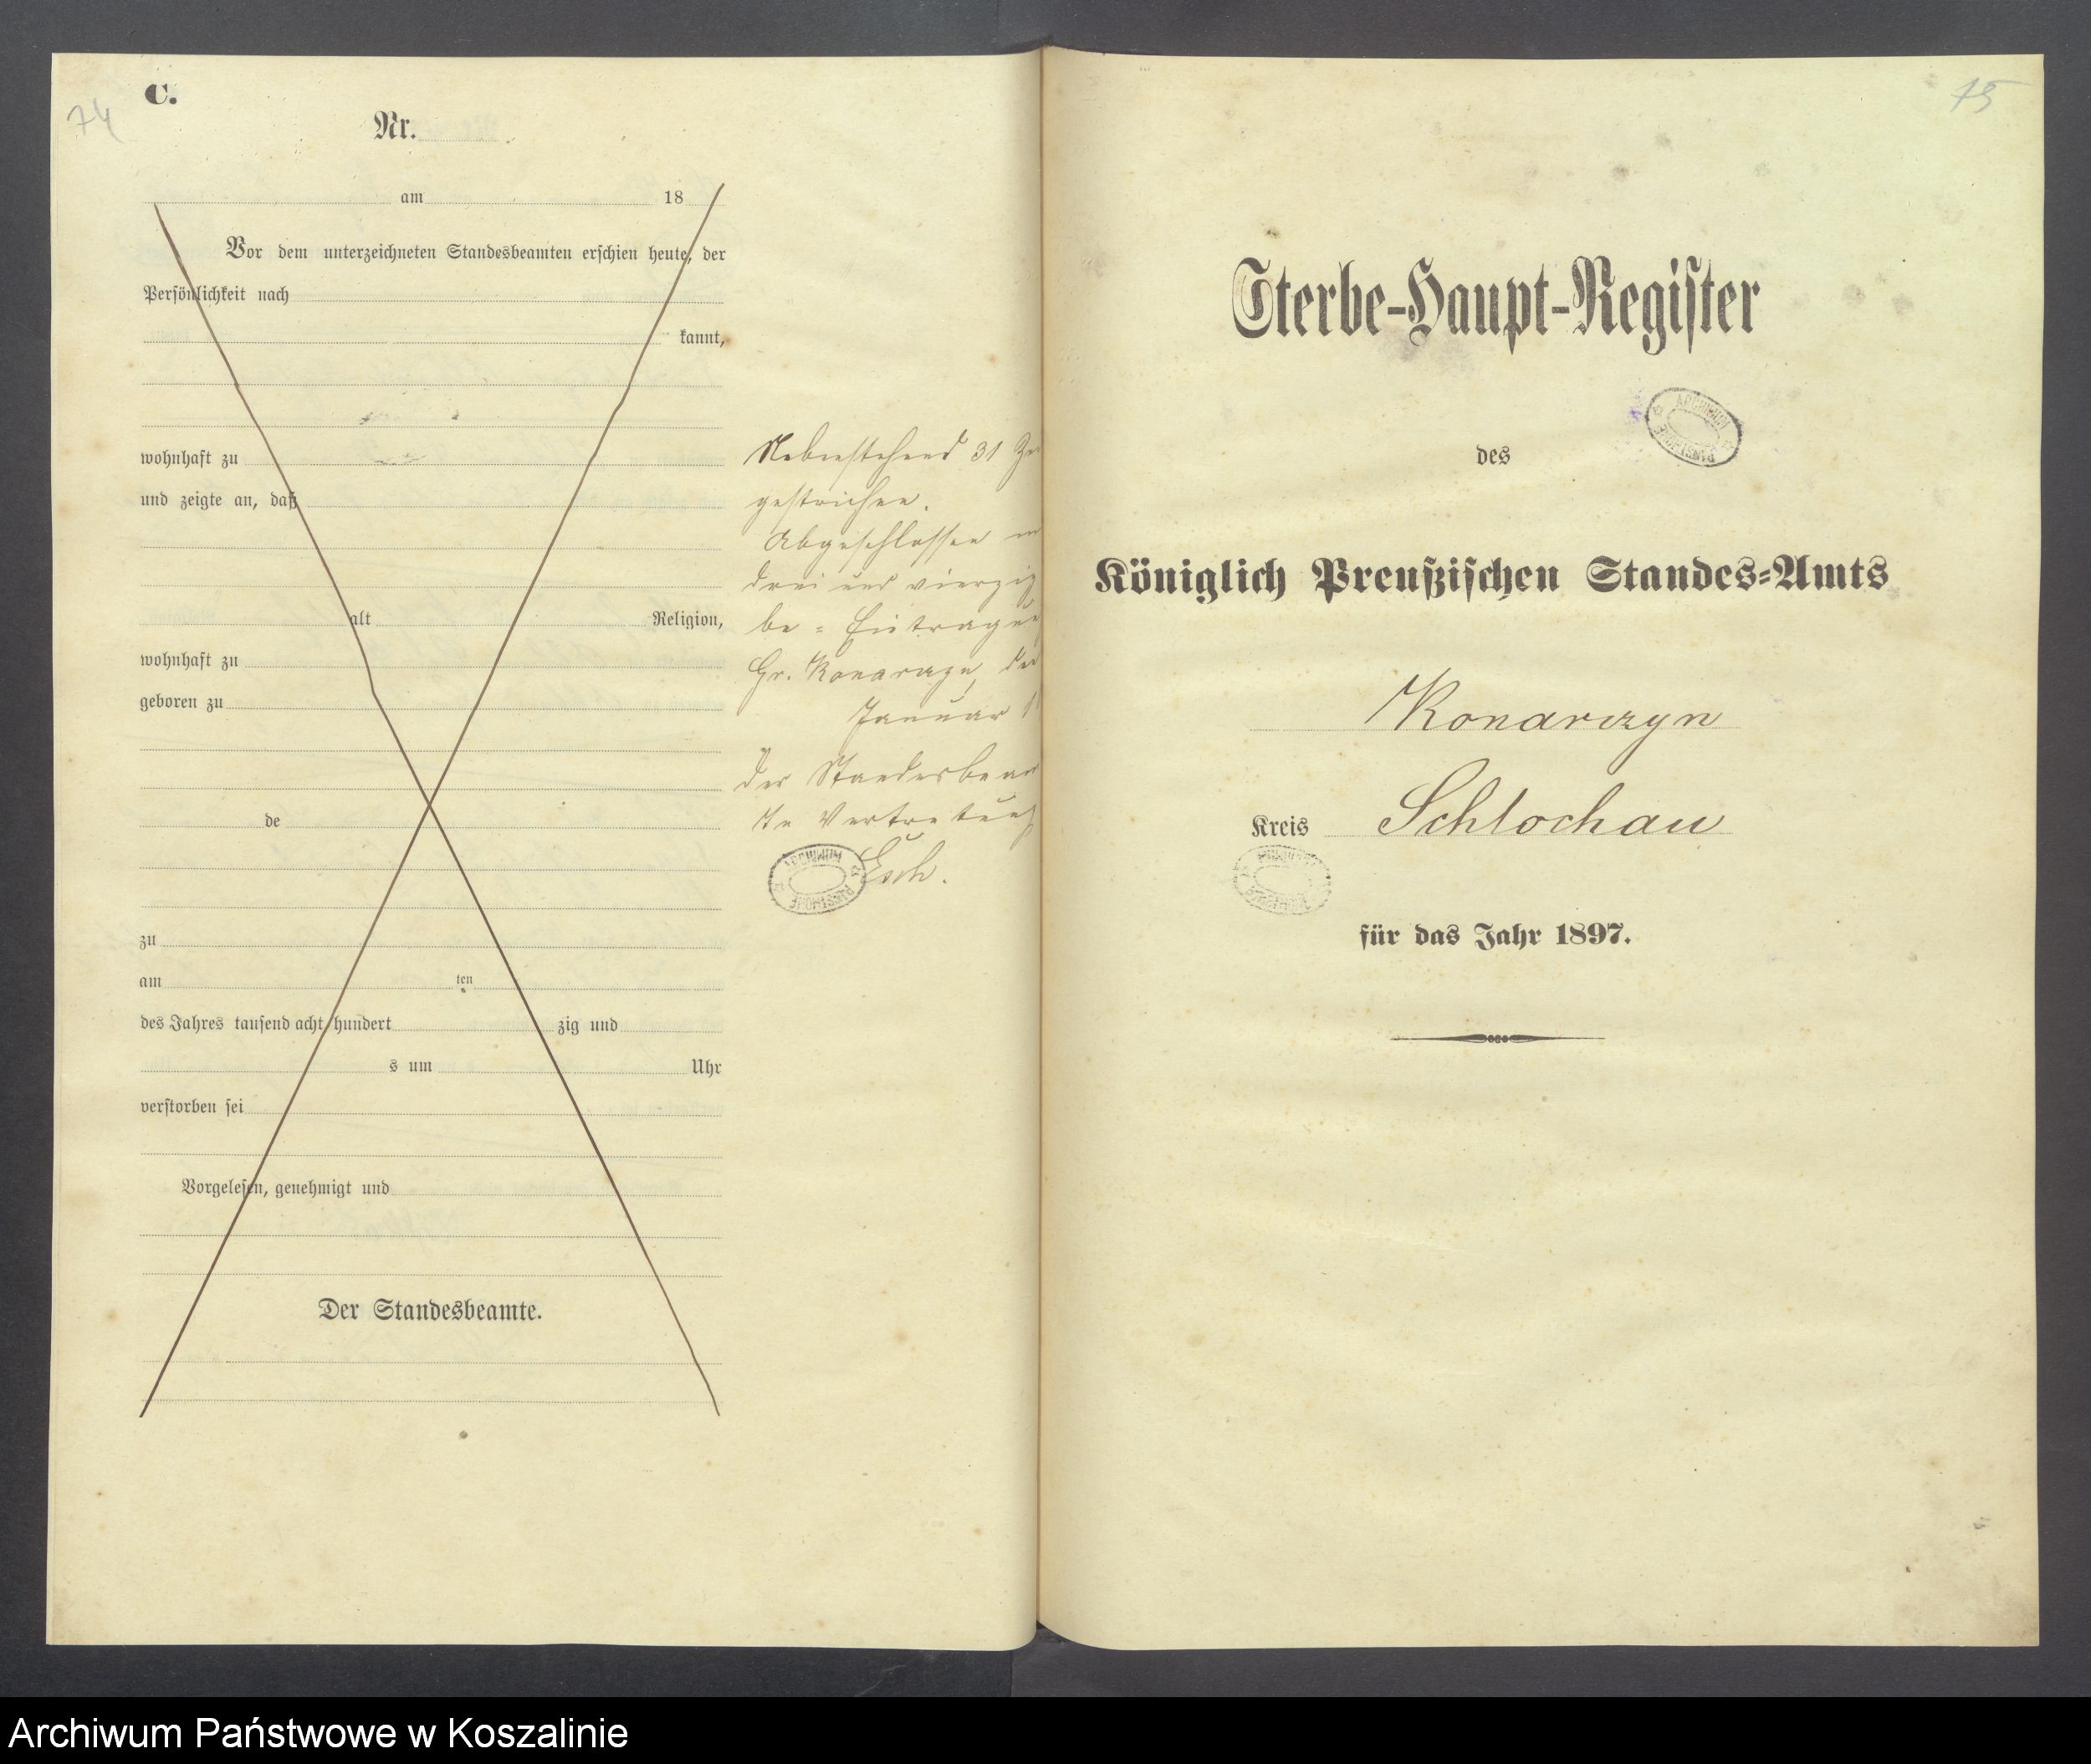 74
C.
Nr.
am 18
Vor dem unterzeichneten Standesbeamten erschien heute, der
Persönlichkeit nach
kannt,
wohnhaft zu
und zeigte an, daß
alt Religion,
wohnhaft zu
geboren zu
de
zu
am ten
des Jahres tausend acht hundert zig und
s um Uhr
verstorben sei
Vorgelesen, genehmigt und
Der Standesbeamte.
Nebenstehend 31
gestrichen.
Abgeschlossen
drei und vierzig
be = Eintragun
Gr. Konarczyn, den
Januar
Der Standesbeam
In Vertretung
Esch.
ARCHIWUM
PAŃSTWOWE
75
Sterbe-Haupt-Register
ARCHIWUM
PAŃSTWOWE
des
Königlich Preußischen Standes-Amts
Konarczyn
Kreis Schlochau
ARCHIWUM
PAŃSTWOWE
für das Jahr 1897.
Archiwum Państwowe w Koszalinie